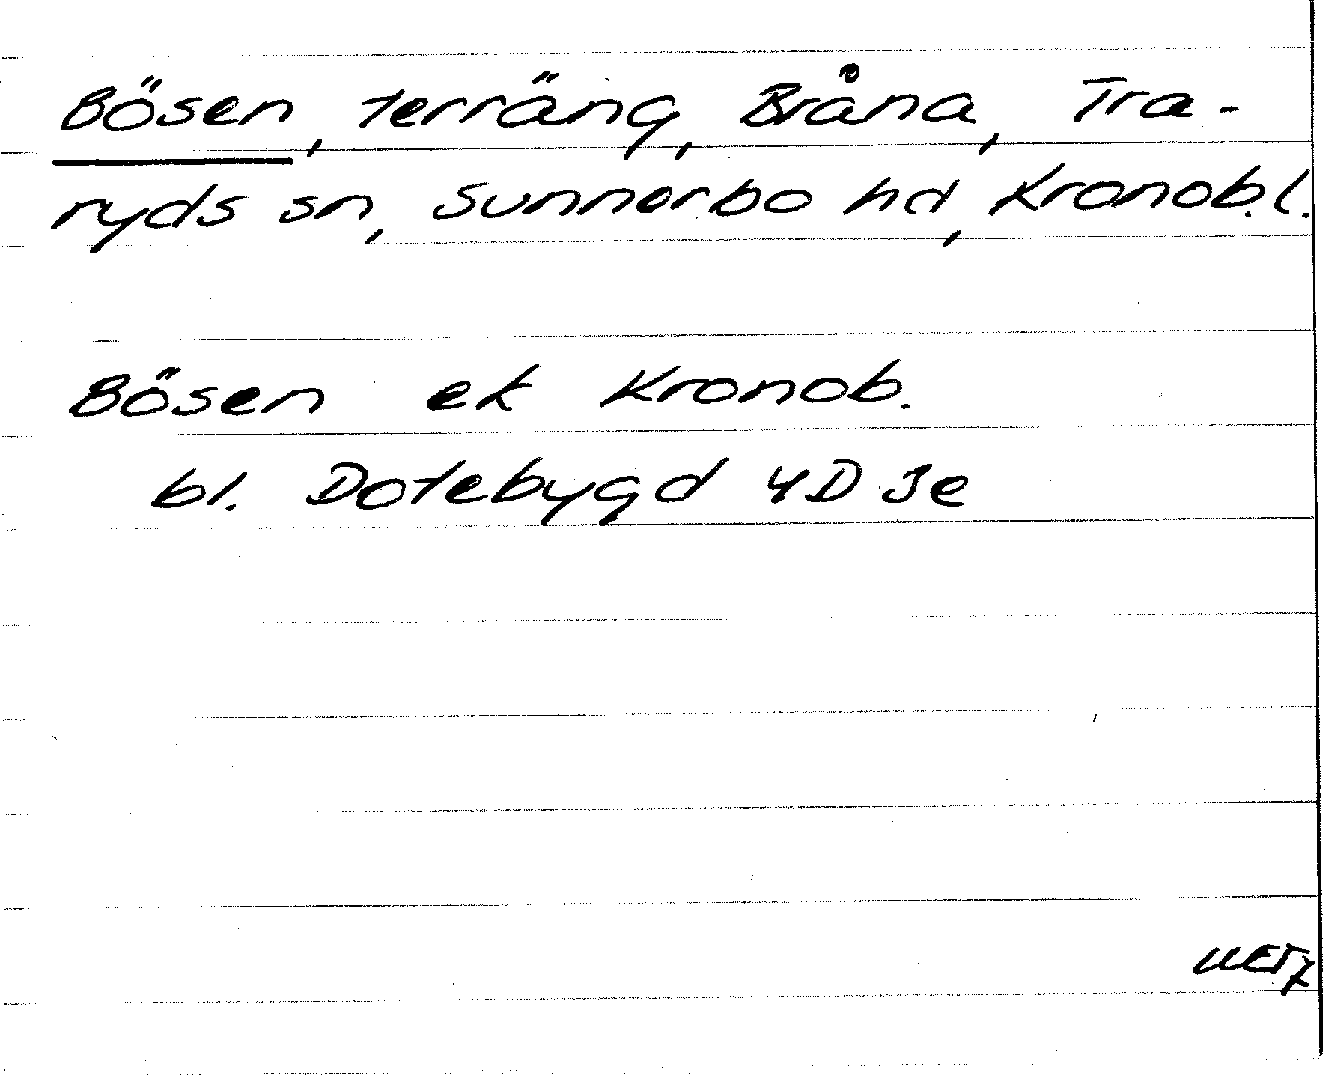 Bösen, terräng, Bråna, Tra-
ryds sn, Sunnerbo hd, Kronob.l.
Bösen ek Kronob.
bl. Dotebygd 4D 3e